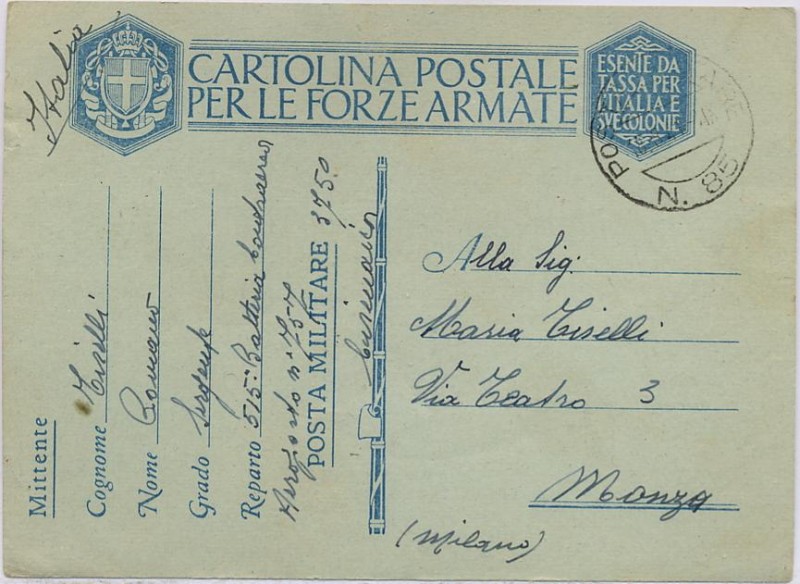 Italia
CARTOLINA POSTALE
PER LE FORZE ARMATE
ESENTE DA
TASSA PER
L'ITALIA E
SVE COLONIE
POSTA MILITARE
N. 85
Mittente
Cognome Tiselli
Nome Romano
Grado Sergente
Reparto 515ª Batteria Contraerea
Aeroporto nº 75-7
POSTA MILITARE 3750
Cirenaica
Alla Sig.
Maria Tiselli
Via Teatro 3
Monza
(Milano)